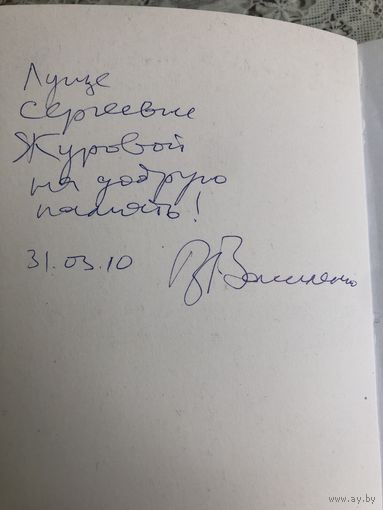 Луизе
Сергеевне
Журовой
на добрую
память!
31.03.10
www.ay.by